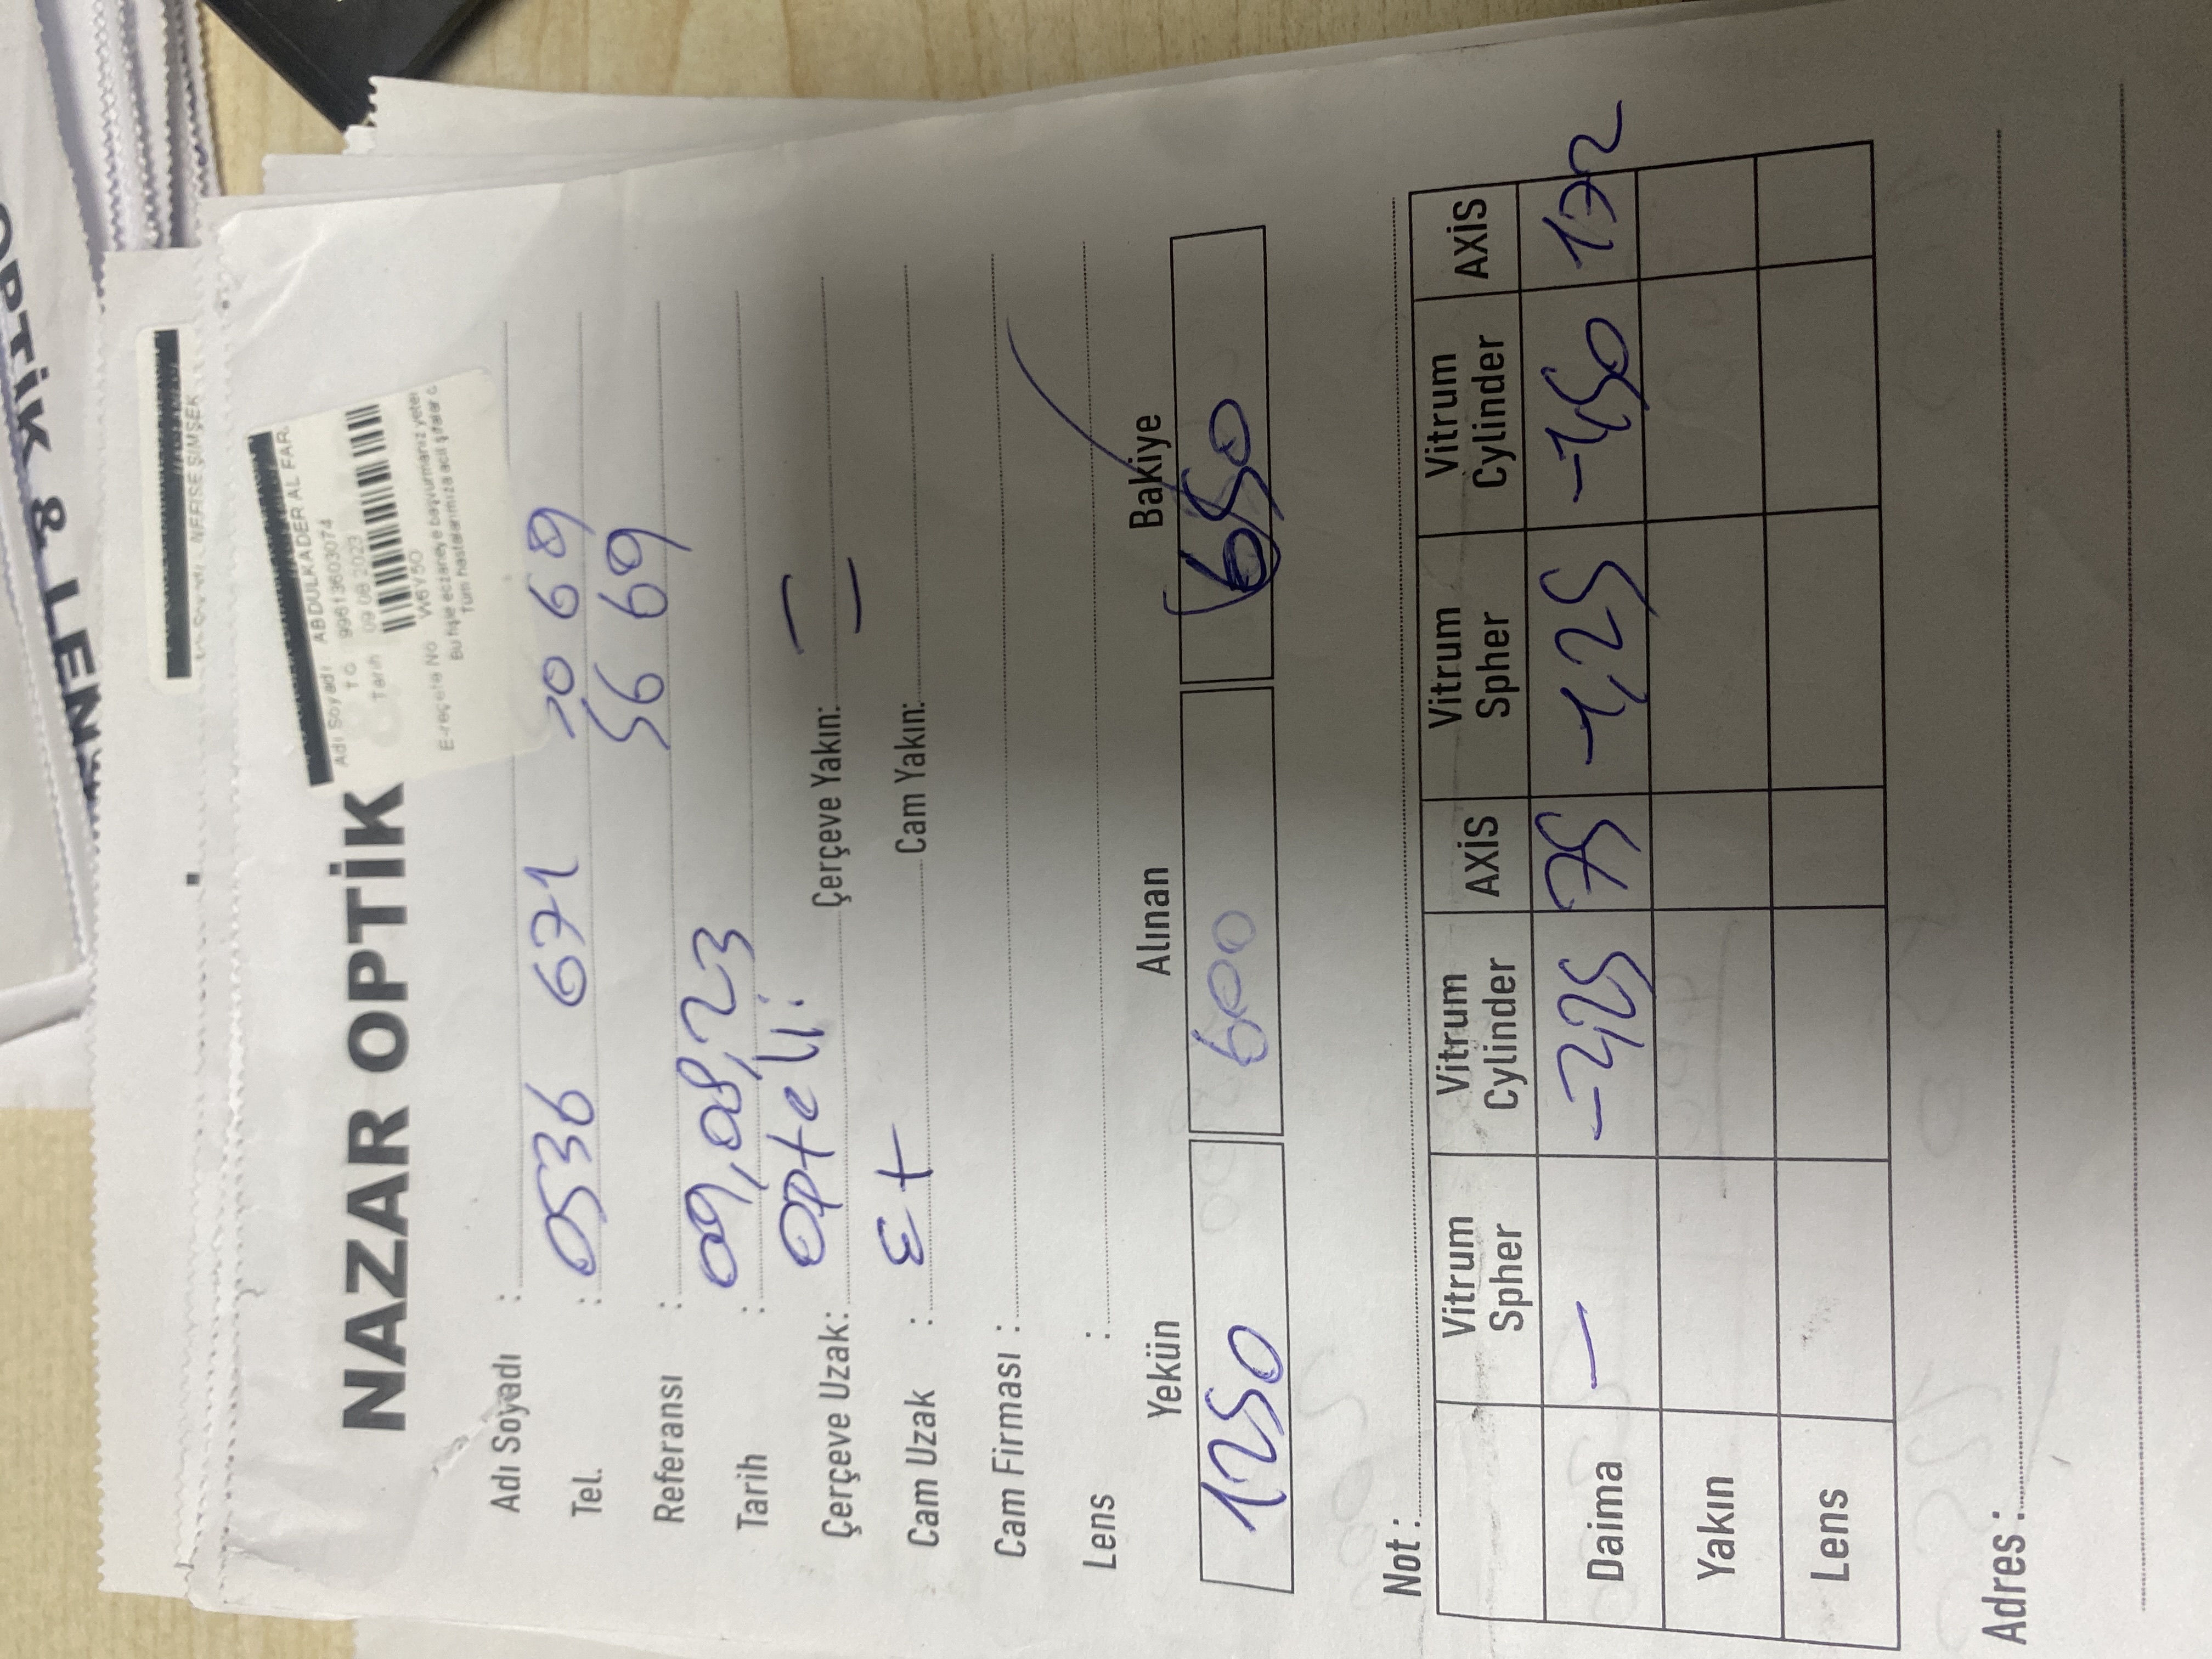 OPTİK & LENS
Adı Soyadı NEFİSE ŞİMŞEK
NAZAR OPTİK
Adı Soyadı : ABDULKADER AL FAR.
TC 99613603074
Tarih 09.08.2023
E-reçete No W6Y5O
Bu fişle eczaneye başvurmanız yeter
Tüm hastalarımıza acil şifalar
Adı Soyadı :
Tel. : 0536 671 50 69
56 69
Referansı :
Tarih : 09,08,23
Çerçeve Uzak: optelli Çerçeve Yakın: =
Cam Uzak : E+ Cam Yakın:
Cam Firması :
Lens :
Yekün Alınan Bakiye
1250 600 650
Not :
Vitrum Spher Vitrum Cylinder AXİS Vitrum Spher Vitrum Cylinder AXİS
Daima — -2,25 75 -1,25 -1,50 172
Yakın
Lens
Adres :